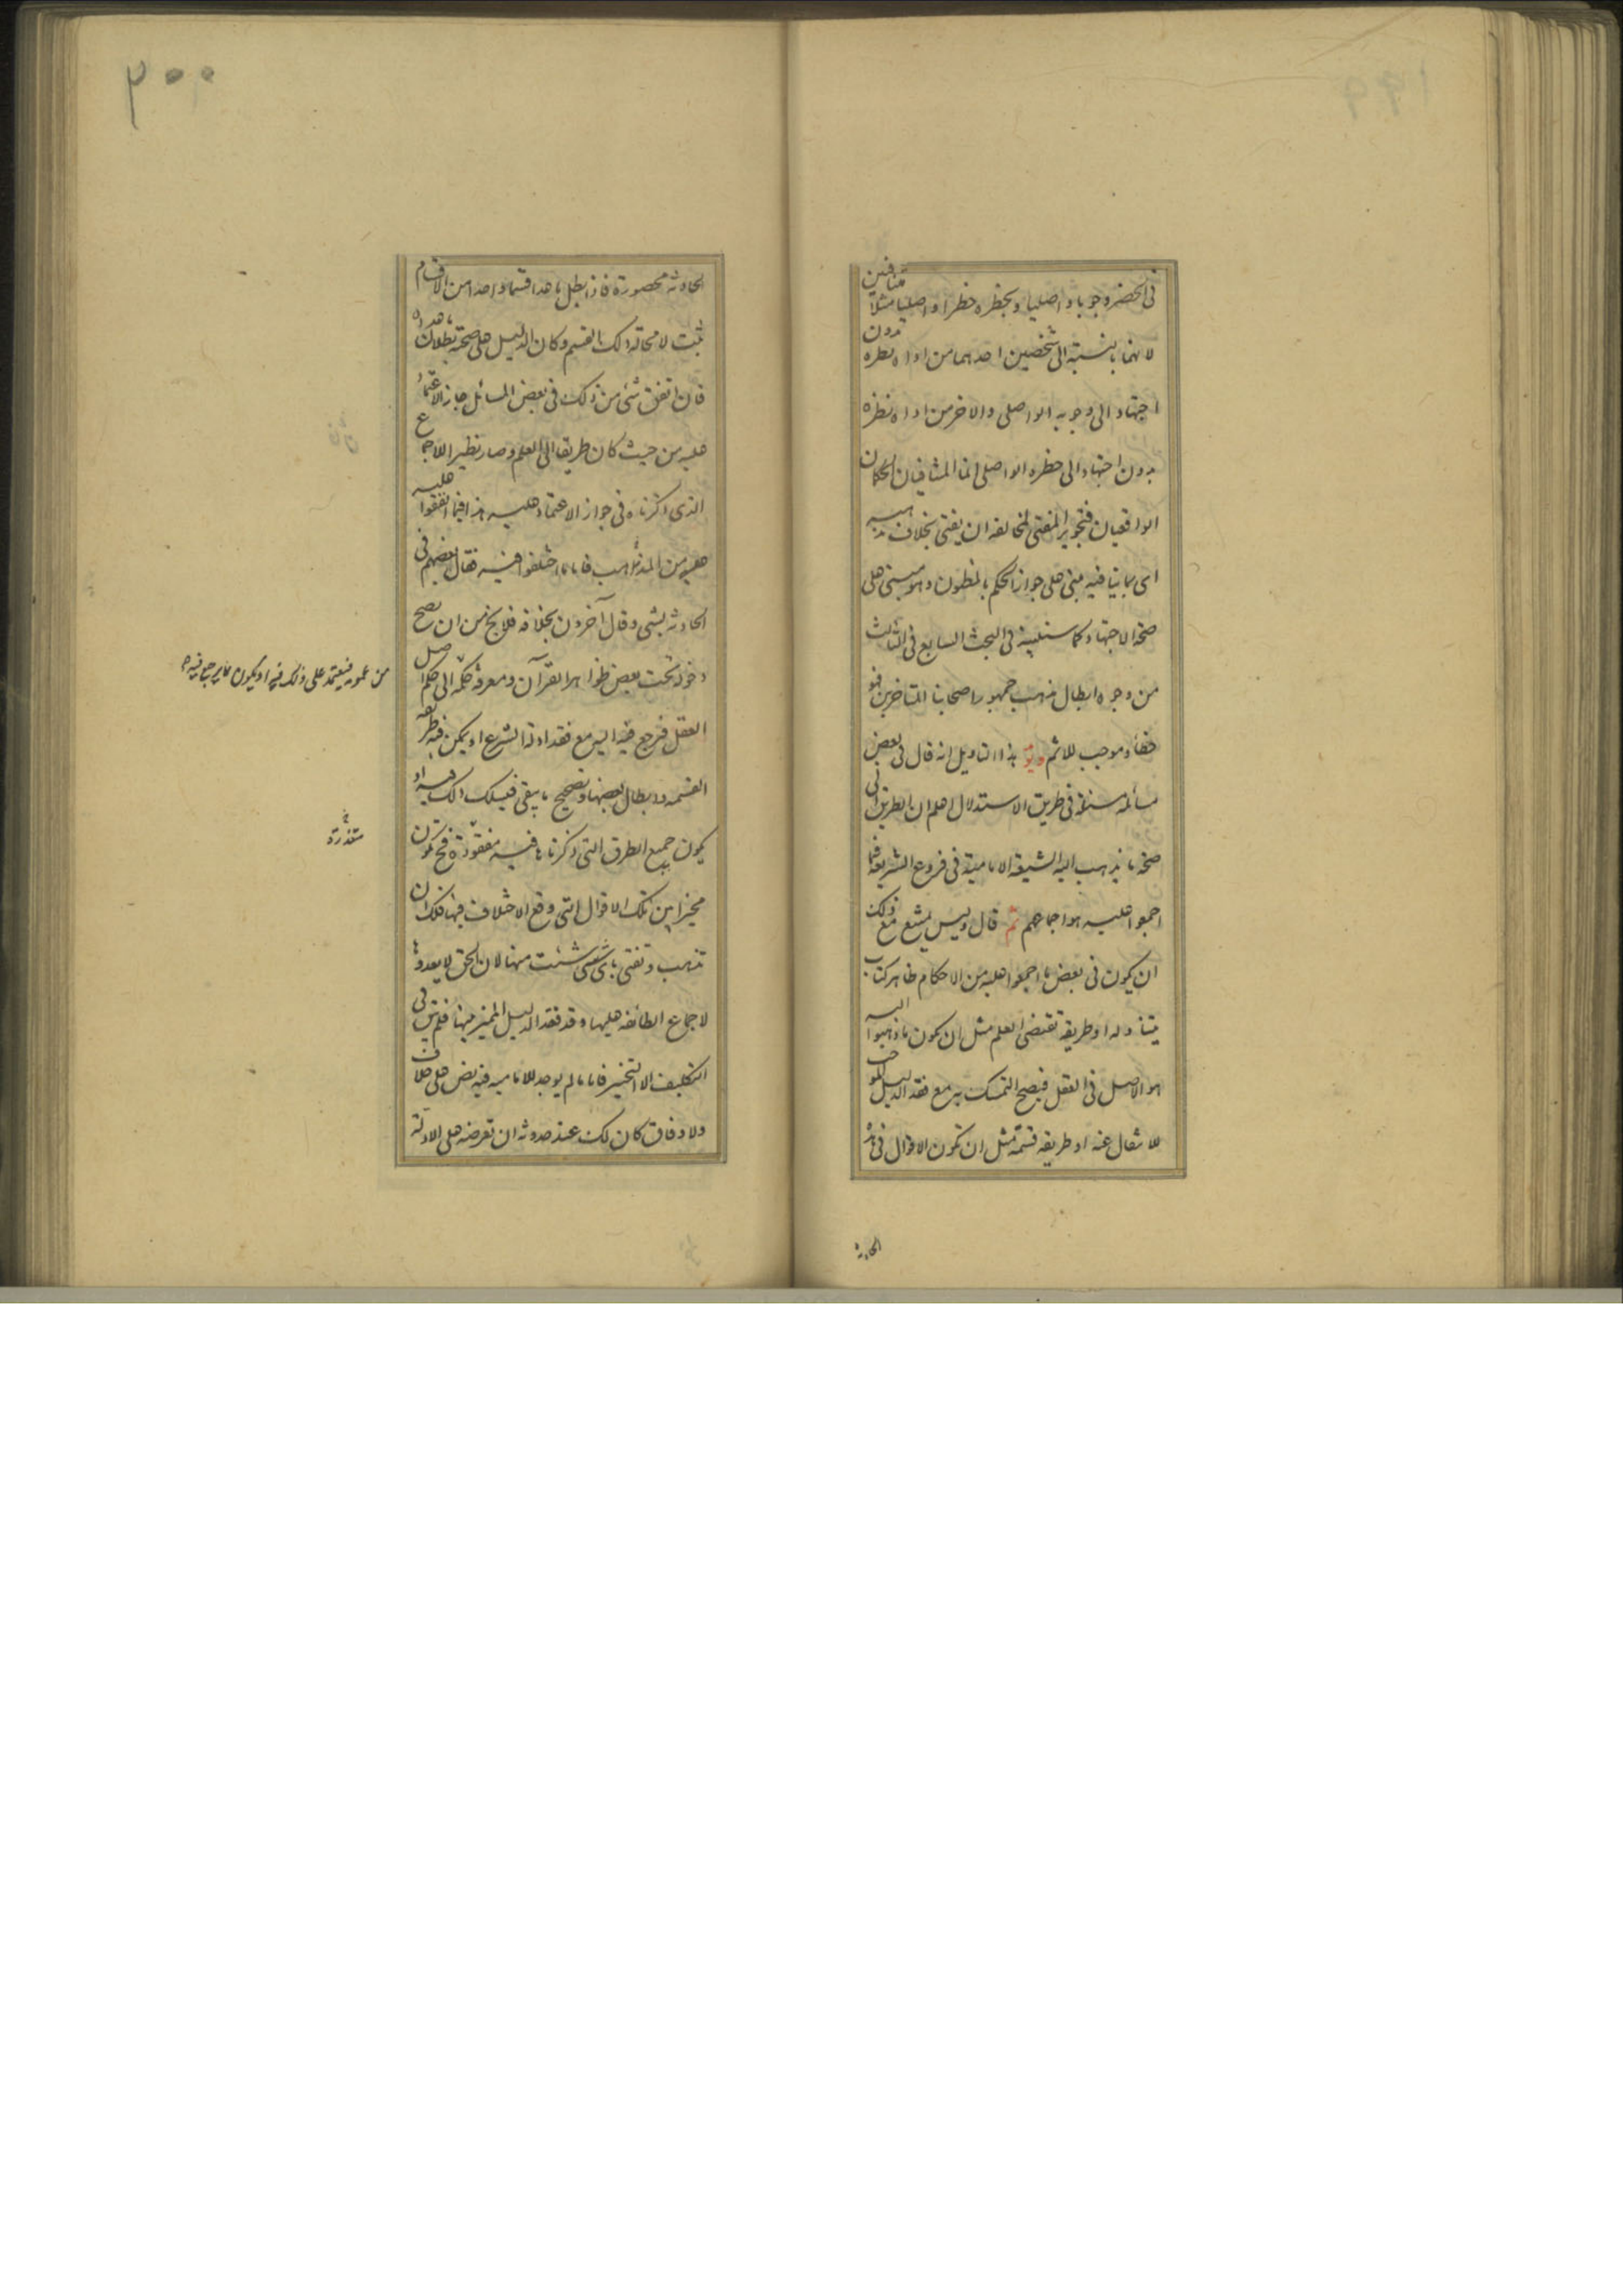 في الحضر وجوبا واصليا وبحظره حظرا واصليا مثلا متنافيين
لانهما بالنسبة الى شخصين احدهما من اداه نظره بدون
اجتهاد الى وجوبه الواصلي والاخر من اداه نظره
بدون اجتهاد الى حظره الواصلي انما المتنافيان الحكمان
الواقعيان فتجويز المفتي لمخالفه ان يفتي بخلاف مذهبه
اي بما ينافيه مبني على جواز الحكم بالمظنون وهو مبني على
صحة الاجتهاد كما سنبينه في البحث السابع في الثالث
من وجوه ابطال مذهب جمهور اصحابنا المتاخرين فهو
خطأ وموجب للاثم هذا التاويل انه قال في بعض
مسألة في طريق الاستدلال اعلم ان الطريق الى
صحة ما يذهب اليه الشيعة الامامية في فروع الشريعة فيما
اجمعوا عليه هو اجماعهم ثم قال وليس يمتنع مع ذلك
ان يكون في بعض ما اجمعوا عليه من الاحكام ظاهر كتاب
يتناوله او طريقة تقتضي العلم مثل ان يكون ما ذهبوا اليه
هو الاصل في العقل فيصح التمسك به مع فقد الدليل الموجب
للانتقال عنه او طريقه قسمة مثل ان تكون الاقوال في هذه
الحادثة
٢٠٠
الحادثة محصورة فاذا بطل ما عدا قسما واحدا من الاقسام
ثبت لا محالة ذلك القسم وكان الدليل على صحته بطلان ما عداه
فان اتفق شئ من ذلك في بعض المسائل جاز الاعتماد
عليه من حيث كان طريقا الى العلم وصار نظير الاجماع
الذي ذكرناه في جواز الاعتماد عليه هذا فيما اتفقوا عليه
من المذاهب فاما ما اختلفوا فيه فقال بعضهم في
الحادثة بشئ وقال آخرون بخلافه فلا يخ من ان يصح
دخوله تحت بعض ظواهر القرآن ومعرفة حكمه الى حكم اصل
من عمومه فيعتمد على ذلك فيه او يكون مما يرجع فيه
العقل فيرجع فيه اليه مع فقد ادلة الشرع او يمكن فيه طريقه
القسمه وابطال بعضها وتصحيح ما يبقى فيسلك ذلك فيه او
يكون جميع الطرق التي ذكرناها فيه مفقودة فح تكون
متعذرة
مخيرا بين تلك الاقوال التي وقع الاختلاف فيها فلك ان
تذهب وتفتي باي شئ شئت منها لان الحق لا يعدوها
لاجماع الطائفه عليها وقد فقد الدليل المميز بينها فلم يبق في
التكليف الا التخيير فاما ما لم يوجد للامامية فيه نص على خلاف
ولا وفاق كان لك عند حدوثه ان تعرضه على الادلة